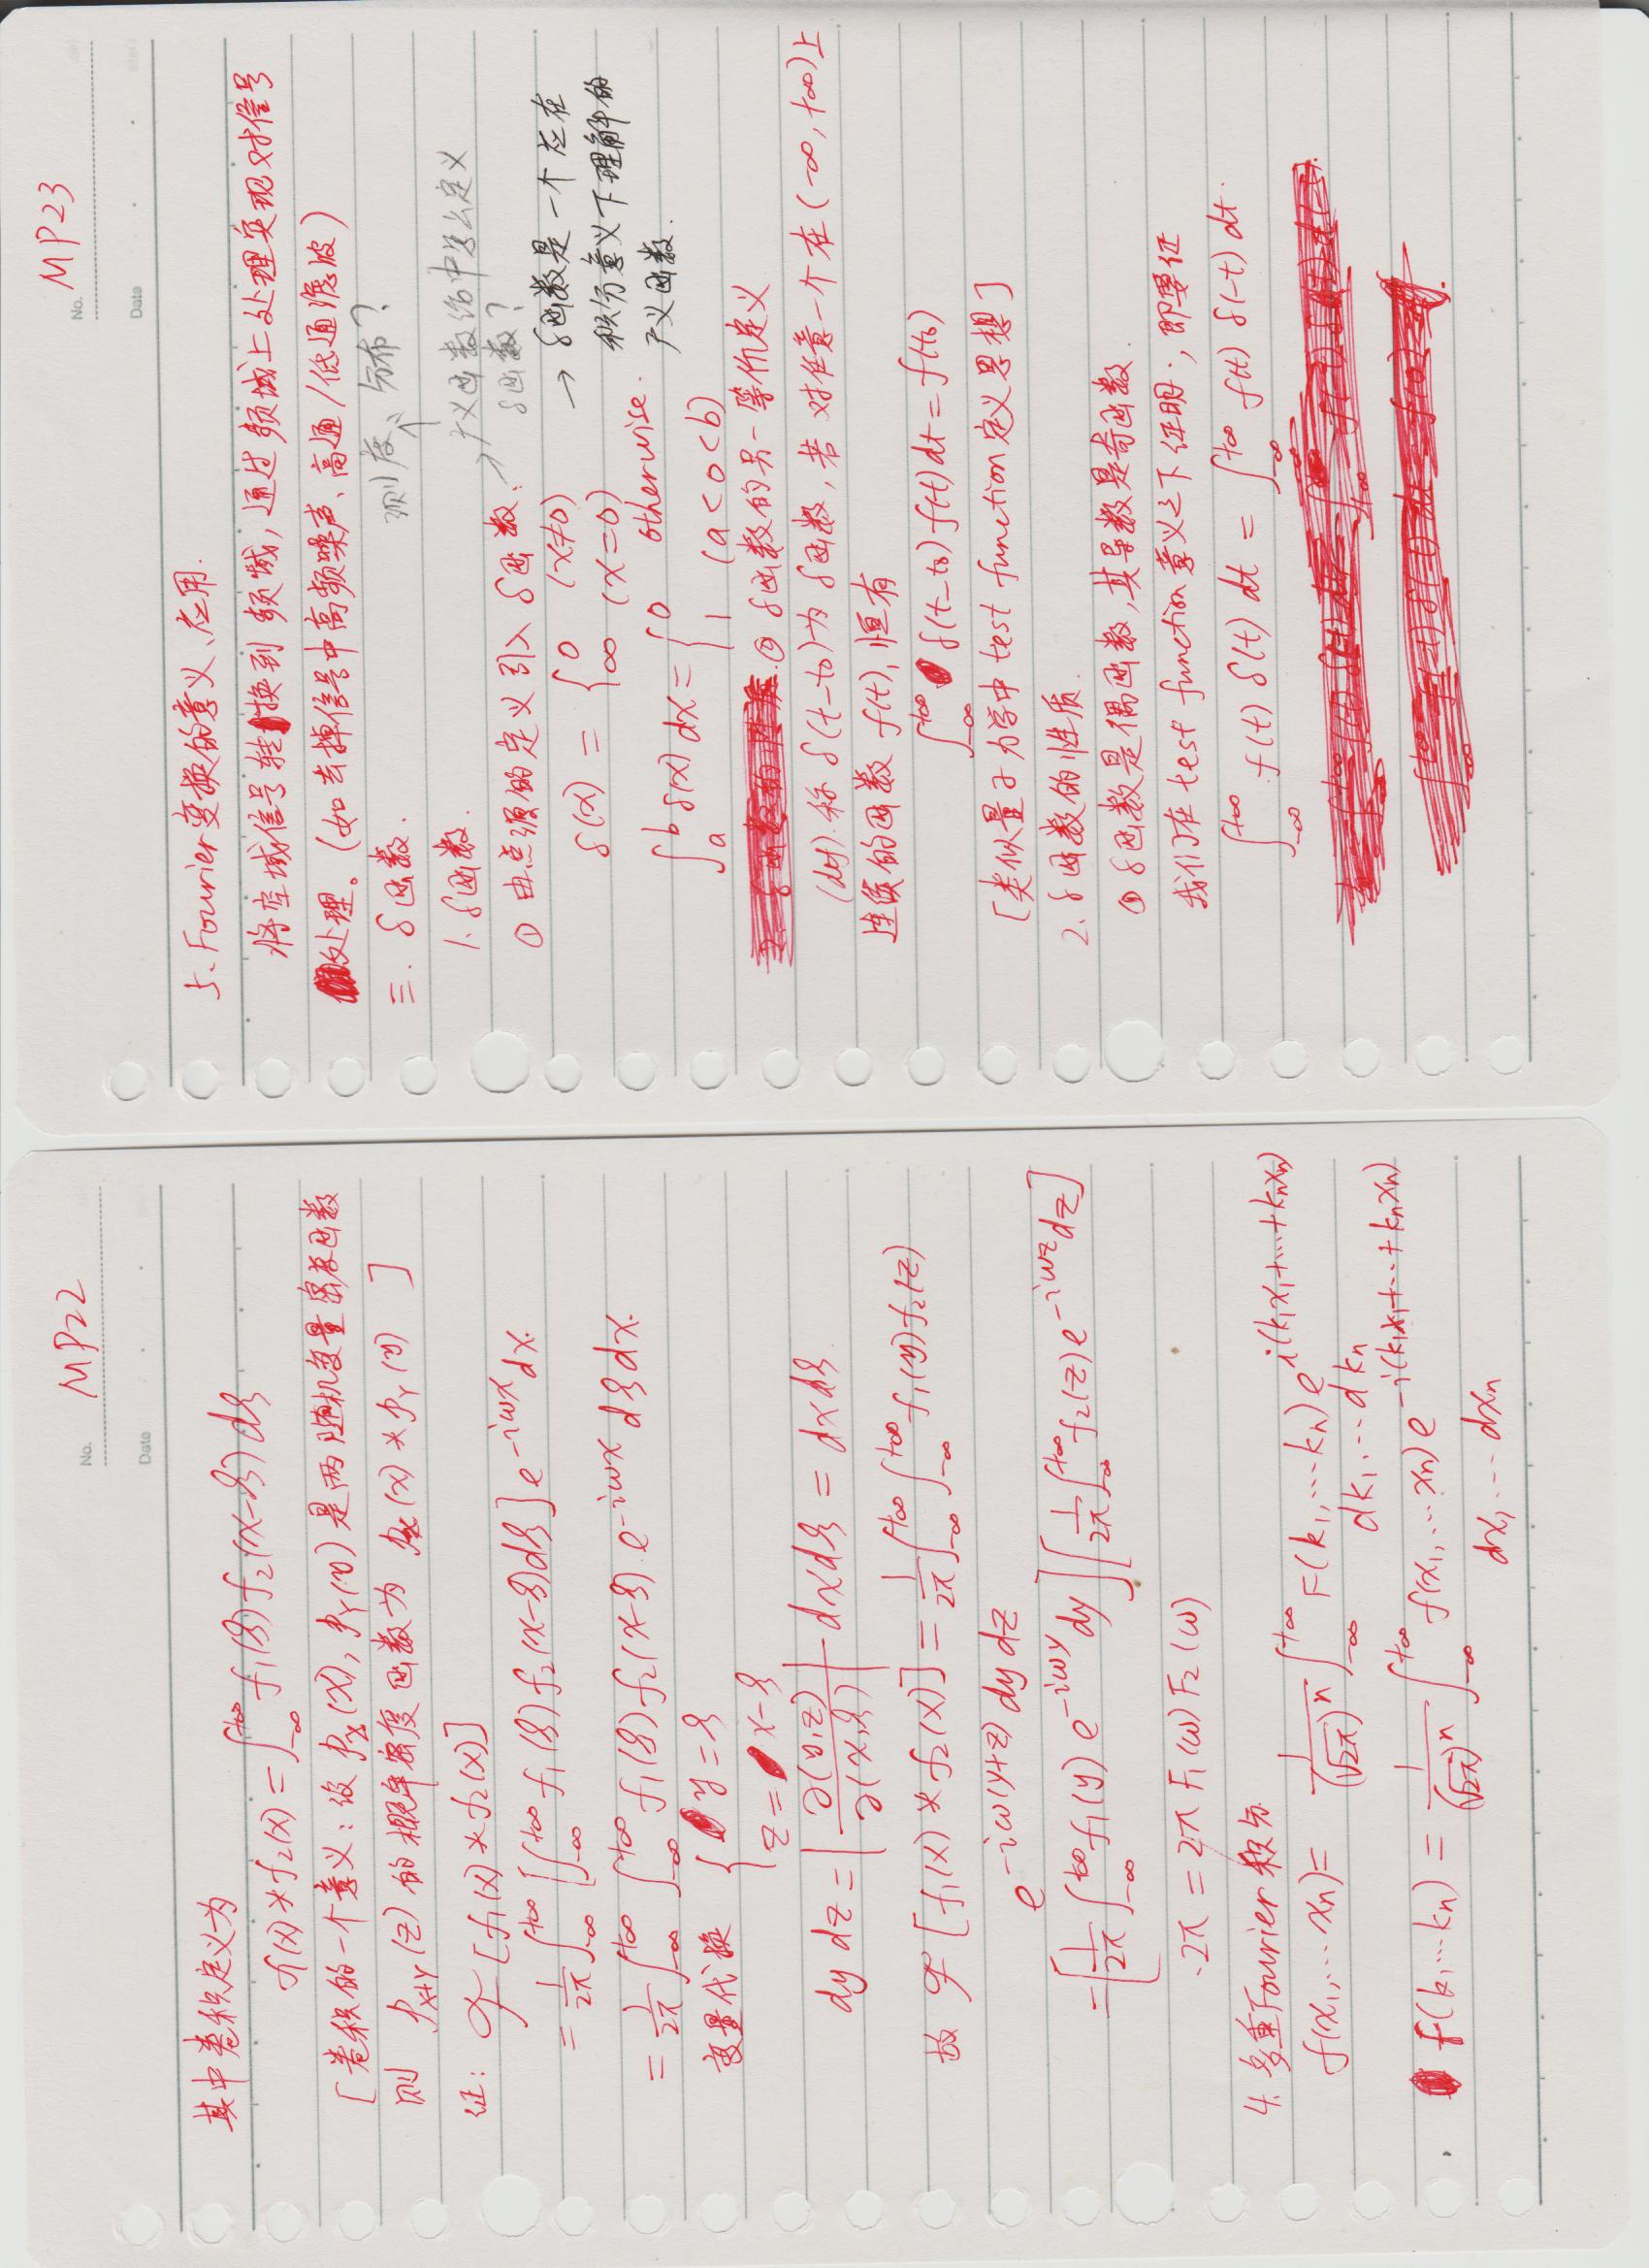 No. MP22
Date
其中卷积定义为
f₁(x)*f₂(x) = ∫_{-∞}^{+∞} f₁(ξ) f₂(x-ξ) dξ
[卷积的一个意义:设 p_X(x), p_Y(y) 是两随机变量密度函数
则 p_{X+Y}(z) 的概率密度函数为 p_X(x) * p_Y(y) ]
证: ℱ[f₁(x)*f₂(x)]
= 1/2π ∫_{-∞}^{+∞} [∫_{-∞}^{+∞} f₁(ξ) f₂(x-ξ)dξ] e^{-iωx} dx.
= 1/2π ∫_{-∞}^{+∞} ∫_{-∞}^{+∞} f₁(ξ) f₂(x-ξ) e^{-iωx} dξdx.
变量代换 { y = ξ
z = x-ξ
dy dz = |∂(y,z)/∂(x,ξ)| dxdξ = dxdξ
故 ℱ[f₁(x) * f₂(x)] = 1/2π ∫_{-∞}^{+∞} ∫_{-∞}^{+∞} f₁(y) f₂(z)
e^{-iω(y+z)} dy dz
= [1/2π ∫_{-∞}^{+∞} f₁(y) e^{-iωy} dy] [1/2π ∫_{-∞}^{+∞} f₂(z) e^{-iωz} dz]
·2π = 2π F₁(ω) F₂(ω)
4. 多重Fourier积分
f(x₁,…xₙ) = 1/(√2π)ⁿ ∫_{-∞}^{+∞} F(k₁,…kₙ) e^{i(k₁x₁+…+kₙxₙ)}
dk₁…dkₙ
F(k₁…kₙ) = 1/(√2π)ⁿ ∫_{-∞}^{+∞} f(x₁,…xₙ) e^{-i(k₁x₁+…+kₙxₙ)}
dx₁…dxₙ
No. MP23
Date
5、Fourier变换的意义、应用.
将空域信号转换到频域,通过频域上处理实现对信号
处理。(如去掉信号中高频噪声、高通/低通滤波)
测度、分布?
三. δ函数.
1. δ函数.
→ 广义函数论中怎么定义
δ函数?
① 由点源的定义引入δ函数:
δ(x) = { 0 (x≠0)
∞ (x=0)
→ δ函数是一个应在
积分意义下理解的
广义函数.
∫_a^b δ(x) dx = { 0 otherwise.
1 (a<0<b)
② δ函数的另一等价定义
(def). 称 δ(t-t₀)为 δ函数, 若对任意一个在(-∞,+∞)上
连续的函数 f(t), 恒有
∫_{-∞}^{+∞} δ(t-t₀) f(t) dt = f(t₀)
[类似量子力学中 test function 定义思想]
2. δ函数的性质.
① δ函数是偶函数,其导数是奇函数.
我们在 test function 意义之下证明., 即要证
∫_{-∞}^{+∞} f(t) δ(t) dt = ∫_{-∞}^{+∞} f(t) δ(-t) dt.